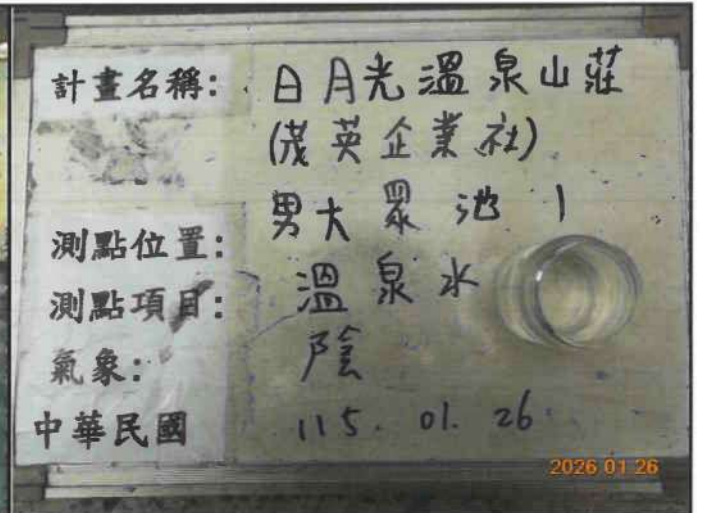 計畫名稱: 日月光溫泉山莊
(茂英企業社)
測點位置: 男大眾池1
測點項目: 溫泉水
氣象: 陰
中華民國 115. 01. 26
2026 01 26